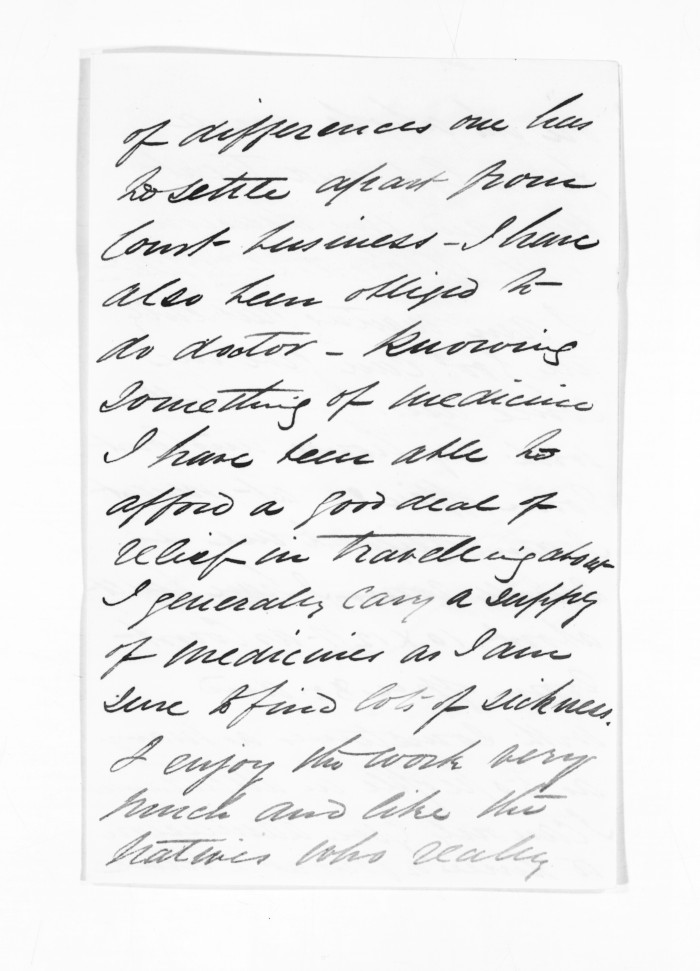 of differences one has
to settle apart from
Court business - I have
also been obliged to
do doctor - knowing
something of medicine
I have been able to
afford a good deal of
relief in travelling about
I generally carry a supply
of medicines as I am
sure to find lots of sickness.
I enjoy the work very
much and like the
natives who really